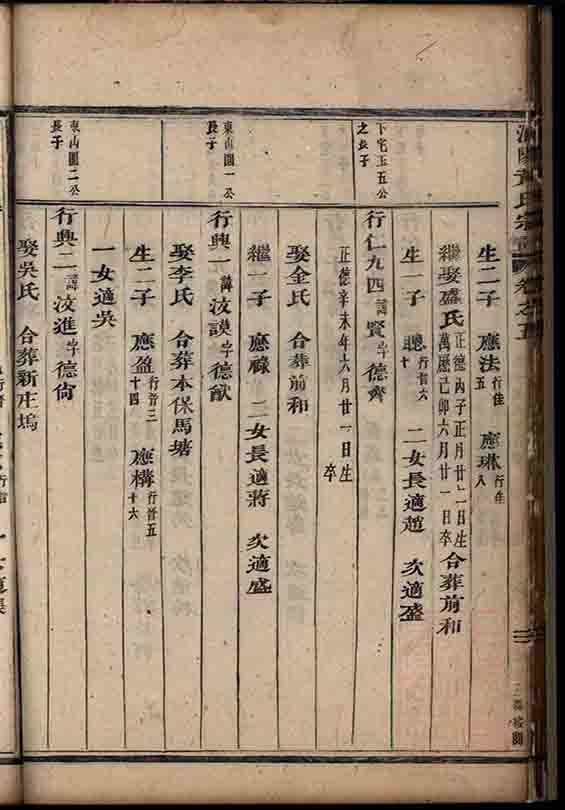 氏宗譜 卷之五
生二子 應法行佳五 應琳行佳八
繼娶盛氏正德丙子正月廿二日生萬曆己卯六月廿一日卒合葬前和
生一子 聰行晋六十 二女長適趙 次適盛
下宅玉五公之長子
行仁九四諱賢字德齊
正德辛未年六月廿一日生 卒
娶金氏 合葬前和
繼一子 應祿 二女長適蔣 次適盛
東山園一公長子
行興一諱汶謨字德猷
娶李氏 合葬本保馬塘
生二子 應盈行晋三十四 應構行晋五十六
一女適吳
東山園二公長子
行興二諱汶進字德尙
娶吳氏 合葬新庄塢